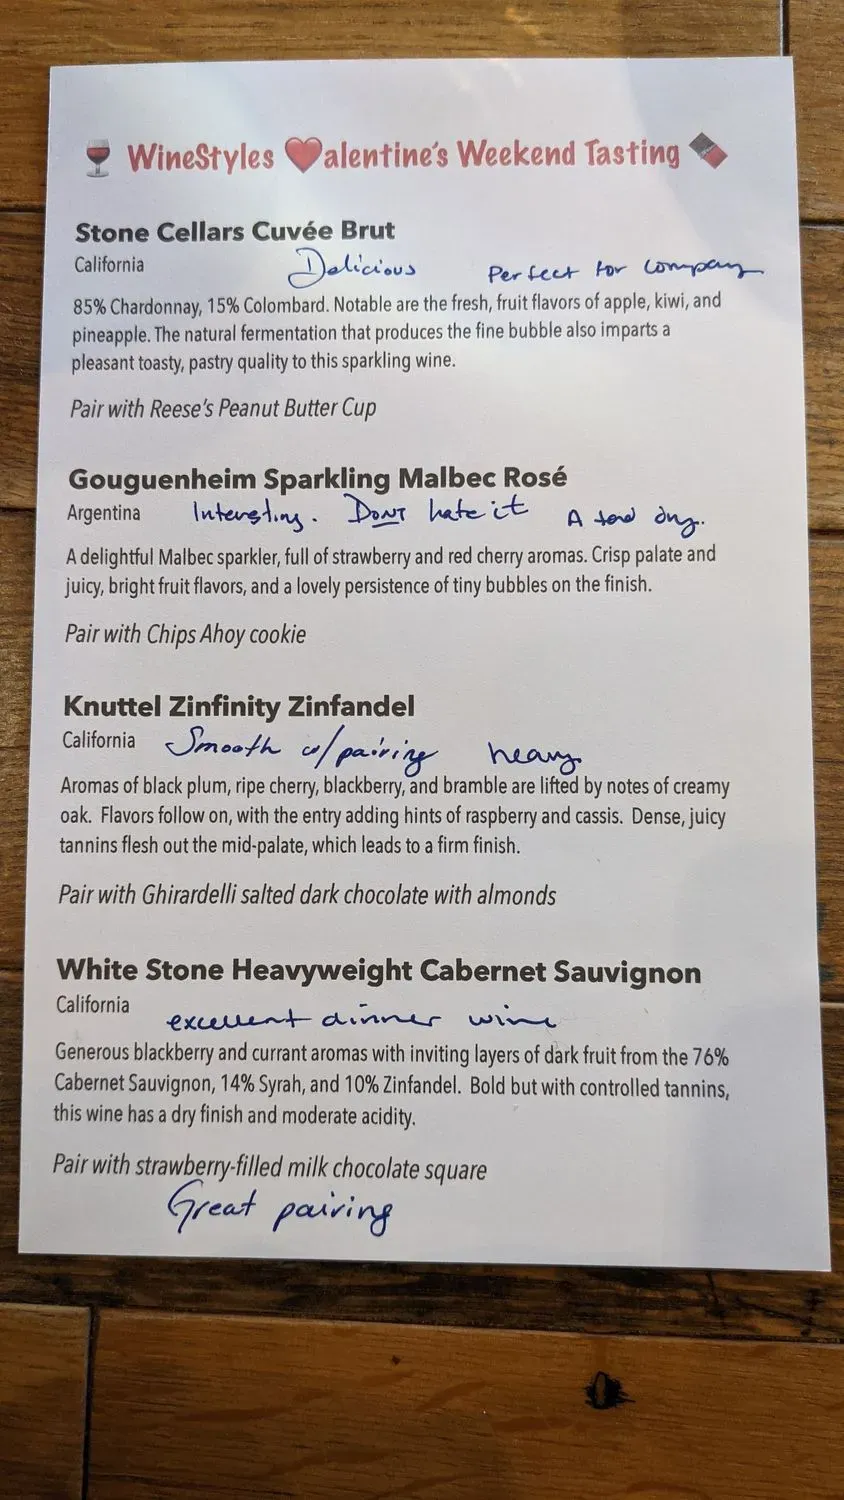 WineStyles ❤alentine's Weekend Tasting
Stone Cellars Cuvée Brut
California
Delicious Perfect for company
85% Chardonnay, 15% Colombard. Notable are the fresh, fruit flavors of apple, kiwi, and
pineapple. The natural fermentation that produces the fine bubble also imparts a
pleasant toasty, pastry quality to this sparkling wine.
Pair with Reese's Peanut Butter Cup
Gouguenheim Sparkling Malbec Rosé
Argentina Interesting. DONT hate it A tad dry.
A delightful Malbec sparkler, full of strawberry and red cherry aromas. Crisp palate and
juicy, bright fruit flavors, and a lovely persistence of tiny bubbles on the finish.
Pair with Chips Ahoy cookie
Knuttel Zinfinity Zinfandel
California Smooth w/pairing heavy
Aromas of black plum, ripe cherry, blackberry, and bramble are lifted by notes of creamy
oak. Flavors follow on, with the entry adding hints of raspberry and cassis. Dense, juicy
tannins flesh out the mid-palate, which leads to a firm finish.
Pair with Ghirardelli salted dark chocolate with almonds
White Stone Heavyweight Cabernet Sauvignon
California
excellent dinner wine
Generous blackberry and currant aromas with inviting layers of dark fruit from the 76%
Cabernet Sauvignon, 14% Syrah, and 10% Zinfandel. Bold but with controlled tannins,
this wine has a dry finish and moderate acidity.
Pair with strawberry-filled milk chocolate square
Great pairing